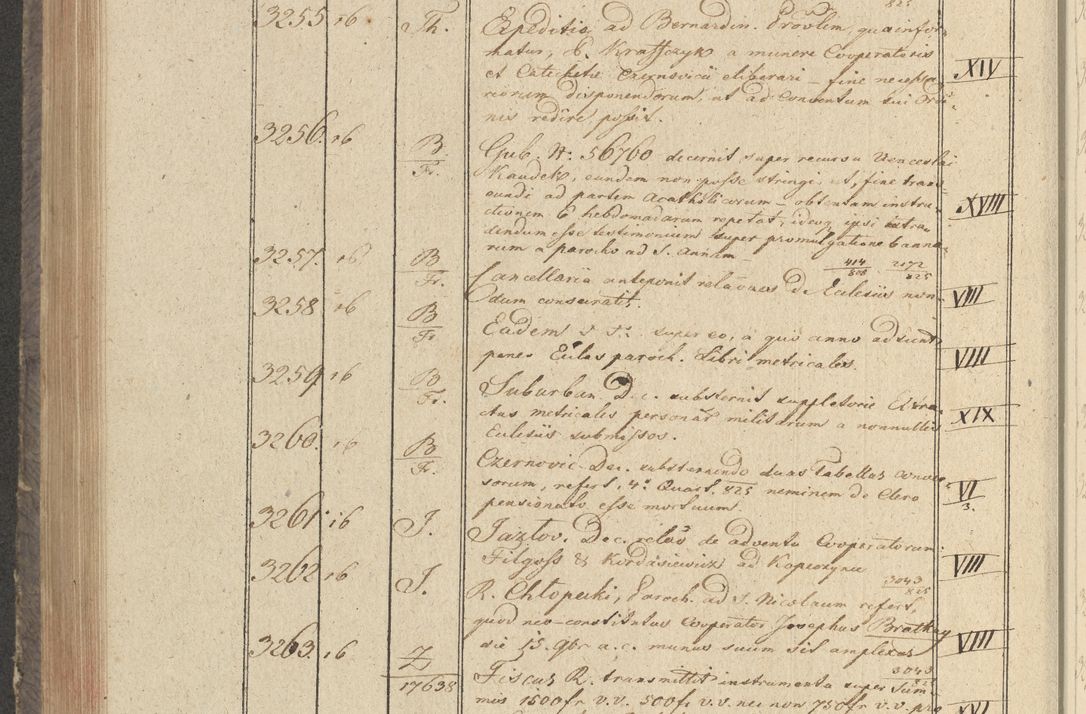 825
3255 16 Th. Expeditio ad Bernardin. Provlem, qua infor-
matur, P. Kraffczyk a munere Cooperatoris
et Catechetae Czernovicii eliberari – fine necessa- XIV
riorum disponendorum, ut ad Conventum sui Ordi-
nis redire possit.
3256. 16 B/Fr. Gub. N: 56760 decernit super recursu Venceslai
Kaudek, eundem non posse stringi, ut, fine trans-
eundi ad partem Acatholicorum – obtentam instru- XVIII
ctionem 6 hebdomadarum repetat, ideoq ipsi extra-
dendum esse testimonium super promulgatione banno-
rum a parocho ad S. Annam
3257. 16 B/Fr. Cancellaria anteponit relaōnes de Ecclesiis non- 414/808 2172/825 VIII
dum consecratis.
3258 16 B/Fr. Eadem super eo, a quo anno adsunt
penes Eclas paroch. Libri metricales. VIII
3259 16 B/Fr. Suburban. D. c. substernit suppletorie Extra-
ctus metricales personar militarum a nonnullis XIX
Eclesiis submissos.
3260. 16 B/Fr. Czernovic. Dec. substernendo duas Tabellas
sorum, refert, 4. Quart. 825 neminem de Clero VI/3.
pensionato esse mortuum.
3261. 16 J. Jazlov. Dec. relaō de adventu Cooperatorum
Filgoss & Kordasiewicz ad Kopeczynce VIII
3043/825
3262 16 J. R. Chłopecki, Paroch. ad S. Nicolaum refert,
quod neo-constitutus Cooperator Josephus Bratkow
die 15. 9br a. c. munus suum sit amplexus VIII
3043/825
3263. 16 Z/17638 Fiscus R. transmittit instrumenta super Sum-
mis 1500fr v.v. 500fr v.v. nec non 750fr v.v. pro XVI